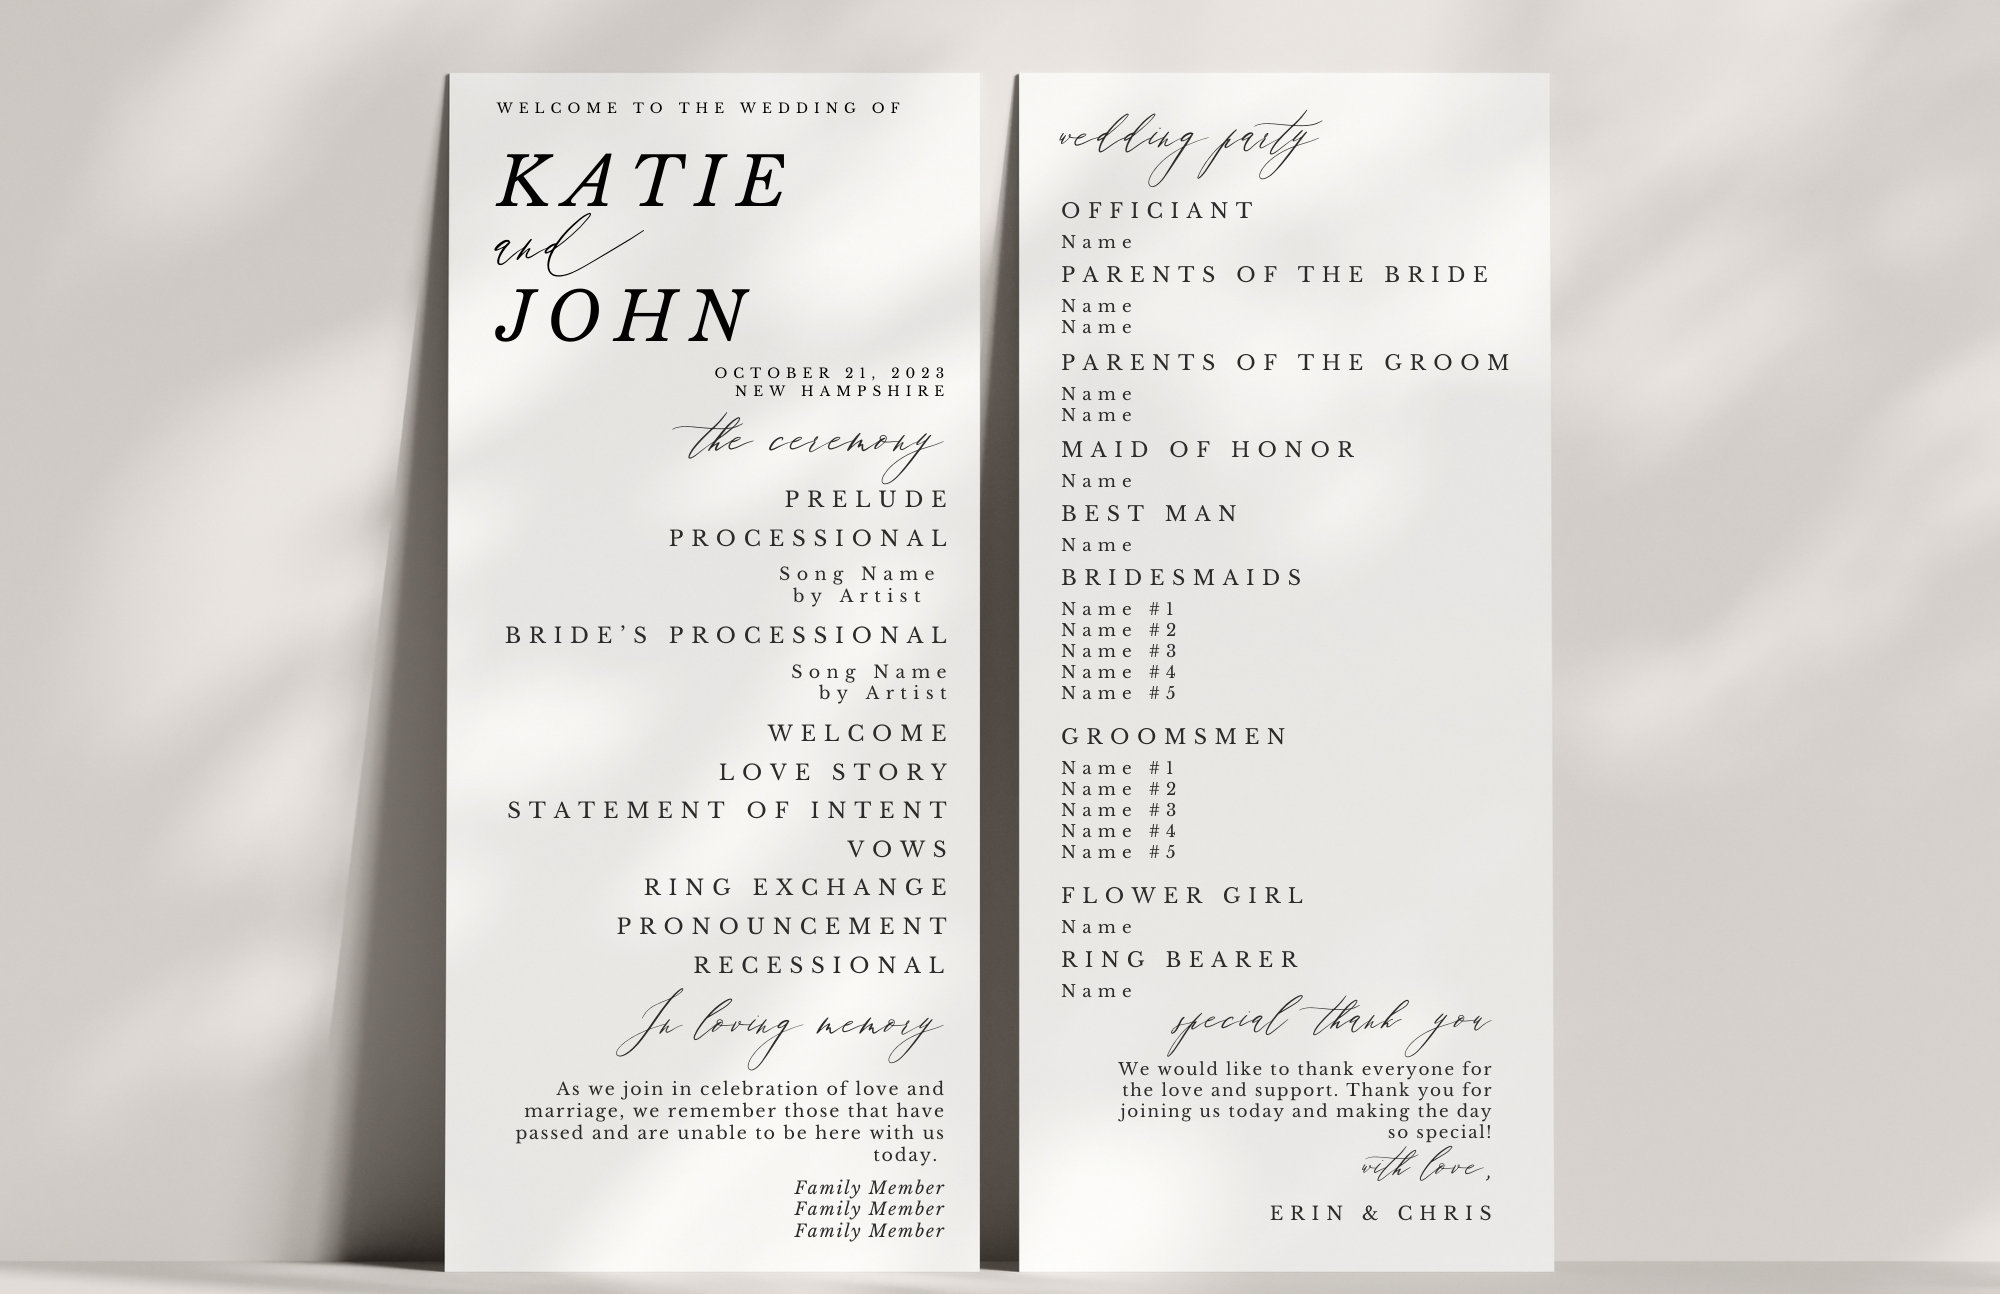 WELCOME TO THE WEDDING OF
KATIE
and
JOHN
OCTOBER 21, 2023
NEW HAMPSHIRE
the ceremony
PRELUDE
PROCESSIONAL
Song Name
by Artist
BRIDE’S PROCESSIONAL
Song Name
by Artist
WELCOME
LOVE STORY
STATEMENT OF INTENT
VOWS
RING EXCHANGE
PRONOUNCEMENT
RECESSIONAL
In loving memory
As we join in celebration of love and
marriage, we remember those that have
passed and are unable to be here with us
today.
Family Member
Family Member
Family Member
wedding party
OFFICIANT
Name
PARENTS OF THE BRIDE
Name
Name
PARENTS OF THE GROOM
Name
Name
MAID OF HONOR
Name
BEST MAN
Name
BRIDESMAIDS
Name #1
Name #2
Name #3
Name #4
Name #5
GROOMSMEN
Name #1
Name #2
Name #3
Name #4
Name #5
FLOWER GIRL
Name
RING BEARER
Name
special thank you
We would like to thank everyone for
the love and support. Thank you for
joining us today and making the day
so special!
with love,
ERIN & CHRIS